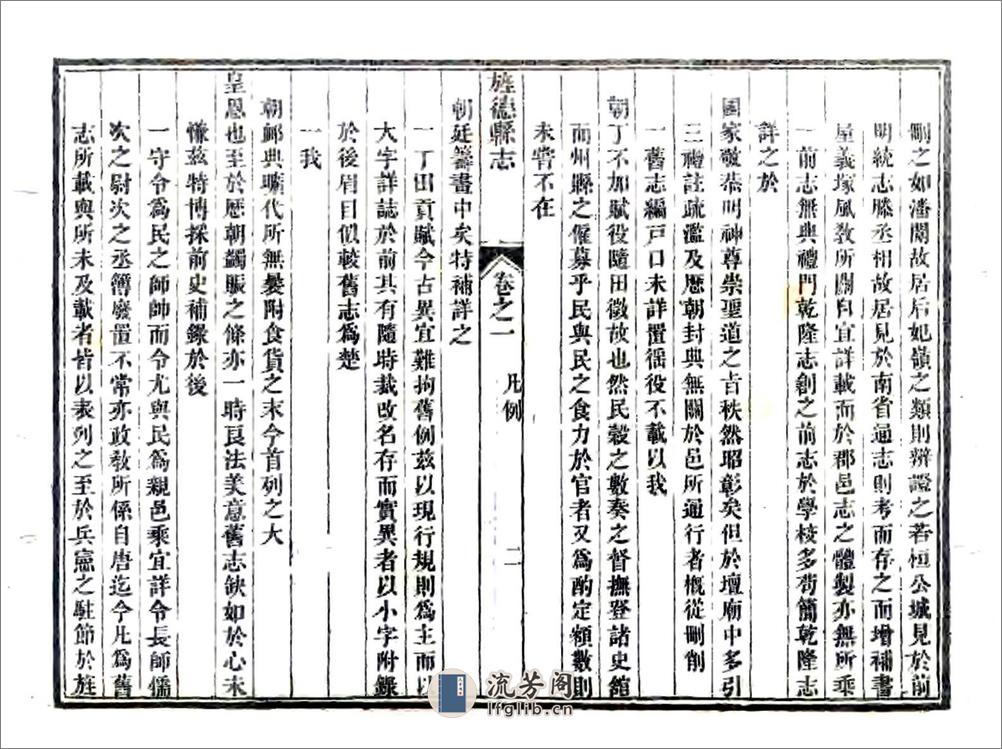 刪之如潘閬故居后妃嶺之類則辨證之若桓公城見於前
明統志滕丞相故居見於南省通志則考而存之而增補書
屋義塚風敎所關自宜詳載而於郡邑志之體製亦無所乖
一前志無典禮門乾隆志創之前志於學校多苟簡乾隆志
詳之於
國家敬恭明神尊崇聖道之㫖秩然昭彰矣但於壇廟中多引
三禮註疏濫及歷朝封典無關於邑所通行者概從刪削
一舊志編戸口未詳置徭役不載以我
朝丁不加賦役隨田徵故也然民穀之數奏之督撫登諸史館
而州縣之僱募乎民與民之食力於官者又爲酌定額數則
未嘗不在
旌德縣志
卷之一
凡例
二
朝廷籌畫中矣特補詳之
一丁田貢賦今古異宜難拘舊例茲以現行規則爲主而以
大字詳誌於前其有隨時裁改名存而實異者以小字附錄
於後眉目似較舊志爲楚
一我
朝䘏典曠代所無曩附食貨之末今首列之大
皇恩也至於歷朝蠲賑之條亦一時良法美意舊志缺如於心未
慊茲特博採前史補錄於後
一守令爲民之師帥而令尤與民爲親邑乘宜詳令長師儒
次之尉次之丞簿廢置不常亦政敎所係自唐迄今凡爲舊
志所載與所未及載者皆以表列之至於兵憲之駐節於旌
流芳阁
lfglib.cn